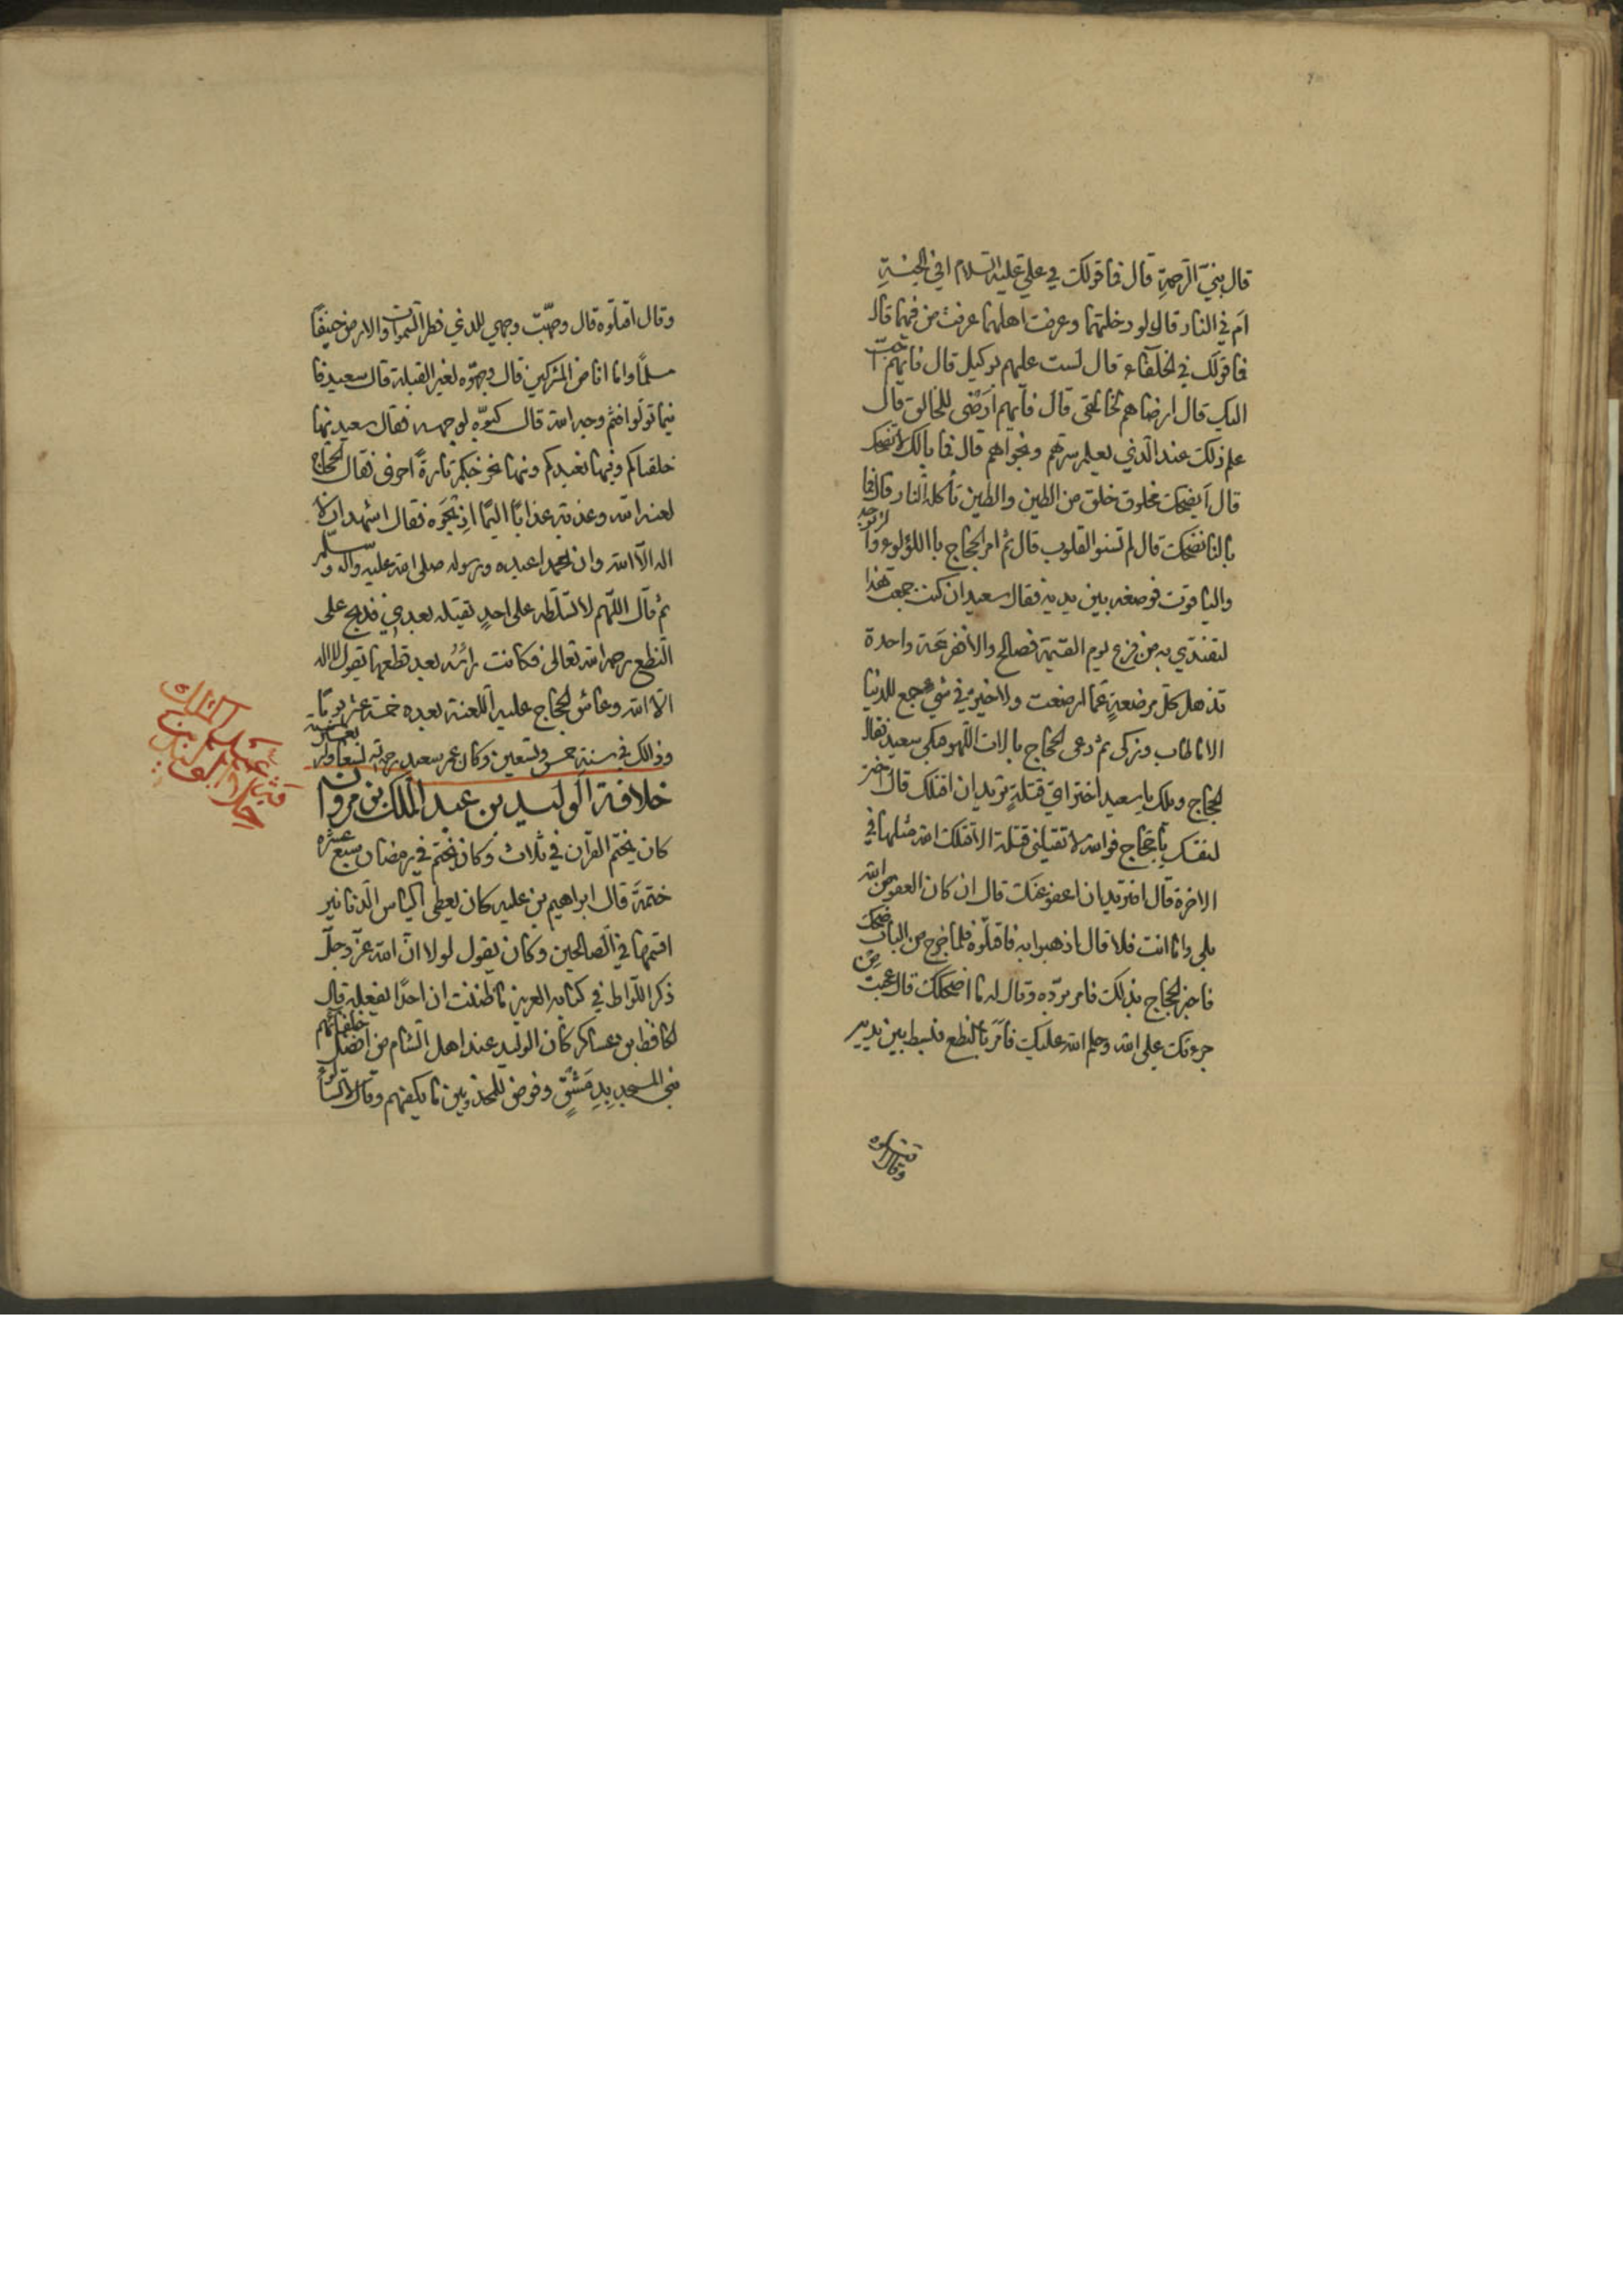 قال بنيّ الرّحمةِ قال فما قولك في عليّ عليه السّلام افي الجنّةِ
اَم في النار قال لو دخلتها وعرفت اهلها عرفت من فيها قال
فما قولك في الخلفآء قال لست عليهم بوكيل قال فايّهم احبّ
اليك قال ارضاهم لخالقى قال فايهم اَرْضى للخالق قال
علم ذلك عند الّذي يعلم سرّهم ونجواهم قال فما بالك لا تضحك
قال اَيضحك مخلوق خلق من الطين والطين تأكله النار قال فما
بالنا نضحك قال لم تستو القلوب قال ثم امر الحجاج باللؤلوء والزبرجد
والياقوت فوضعه بين يديه فقال سعيد ان كنت جمعت هذا
لتفتدي به من فزع يوم القيمة فصالح والا ففزعة واحدة
تذهل كل مرضعةٍ عمّا ارضعت ولا خير في شي جمع للدنيا
الا ما طاب وزكى ثم دعى الحجاج بالات اللّهو فبكى سعيد فقال
الحجاج ويلك يا سعيد اختر اي قتلةٍ تريد ان اقتلك قال اختر
لنفسك يا حجاج فوالله لا تقتلني قتلة الا قتلك الله مثلها في
الاخرة قال افتريد ان اعفو عنك قال ان كان العفو من الله
بلى واما انت فلا قال اذهبوا به فاقتلوه فلما خرج من الباب ضحك
فاخبر الحجاج بذلك فامر بردّه وقال له ما اضحكك قال عجبت من
جرءتك على الله وحلم الله عليك فاَمَرَ بالنطع فبسط بين يديه
وقال اقتلوه
وقال اقتلوه قال وجّهت وجهي للذي فطر السّموات والارض حنيفًا
مسلمًا وما انا من المشركين قال وجهّوه لغير القبلة قال سعيد فا
ينما تولّوا فثم وجه الله قال كبّوه لوجهه فقال سعيد منها
خلقناكم وفيها نعيدكم ومنها نخرجكم تارةً اخرى فقال الحجاج
لعنه الله وعذبه عذابًا اليمًا اذبحوه فقال اشهد ان لا
اله الّا الله وان محمدا عبده ورسوله صلى الله عليه واله وسلّم
ثم قال اللّهم لا تسلّطه على احدٍ يقتله بعدي فذبح على
النّطع رحمه الله تعالى فكانت رائسه بعد قطعها يقول لا اله
الّا الله وعاش الحجاج عليه اللعنة بعده خمسة عشر يومًا
وذالك في سنة خمس وتسعين وكان عمر سعيد رحمه الله تسعا واربعين سنة
خلافة الوليد بن عبد الملك بن مروان
كان يختم القرآن في ثلاث وكان يختم في رمضان سبع عشره
ختمةً قال ابراهيم بن عليه كان يعطى اكياس الدّنانير
اقسمها في الصّالحين وكان يقول لولا انّ الله عزّ وجلّ
ذكر اللّواط في كتابه العزيز ما ظننت ان احدًا يفعله قال
الحافظ بن عساكر كان الوليد عند اهل الشام من افضل خلفائهم
بنى المسجد بدِمَشْقٍ وفرض للمجذومين ما يكفيهم وقال لا تسألوا